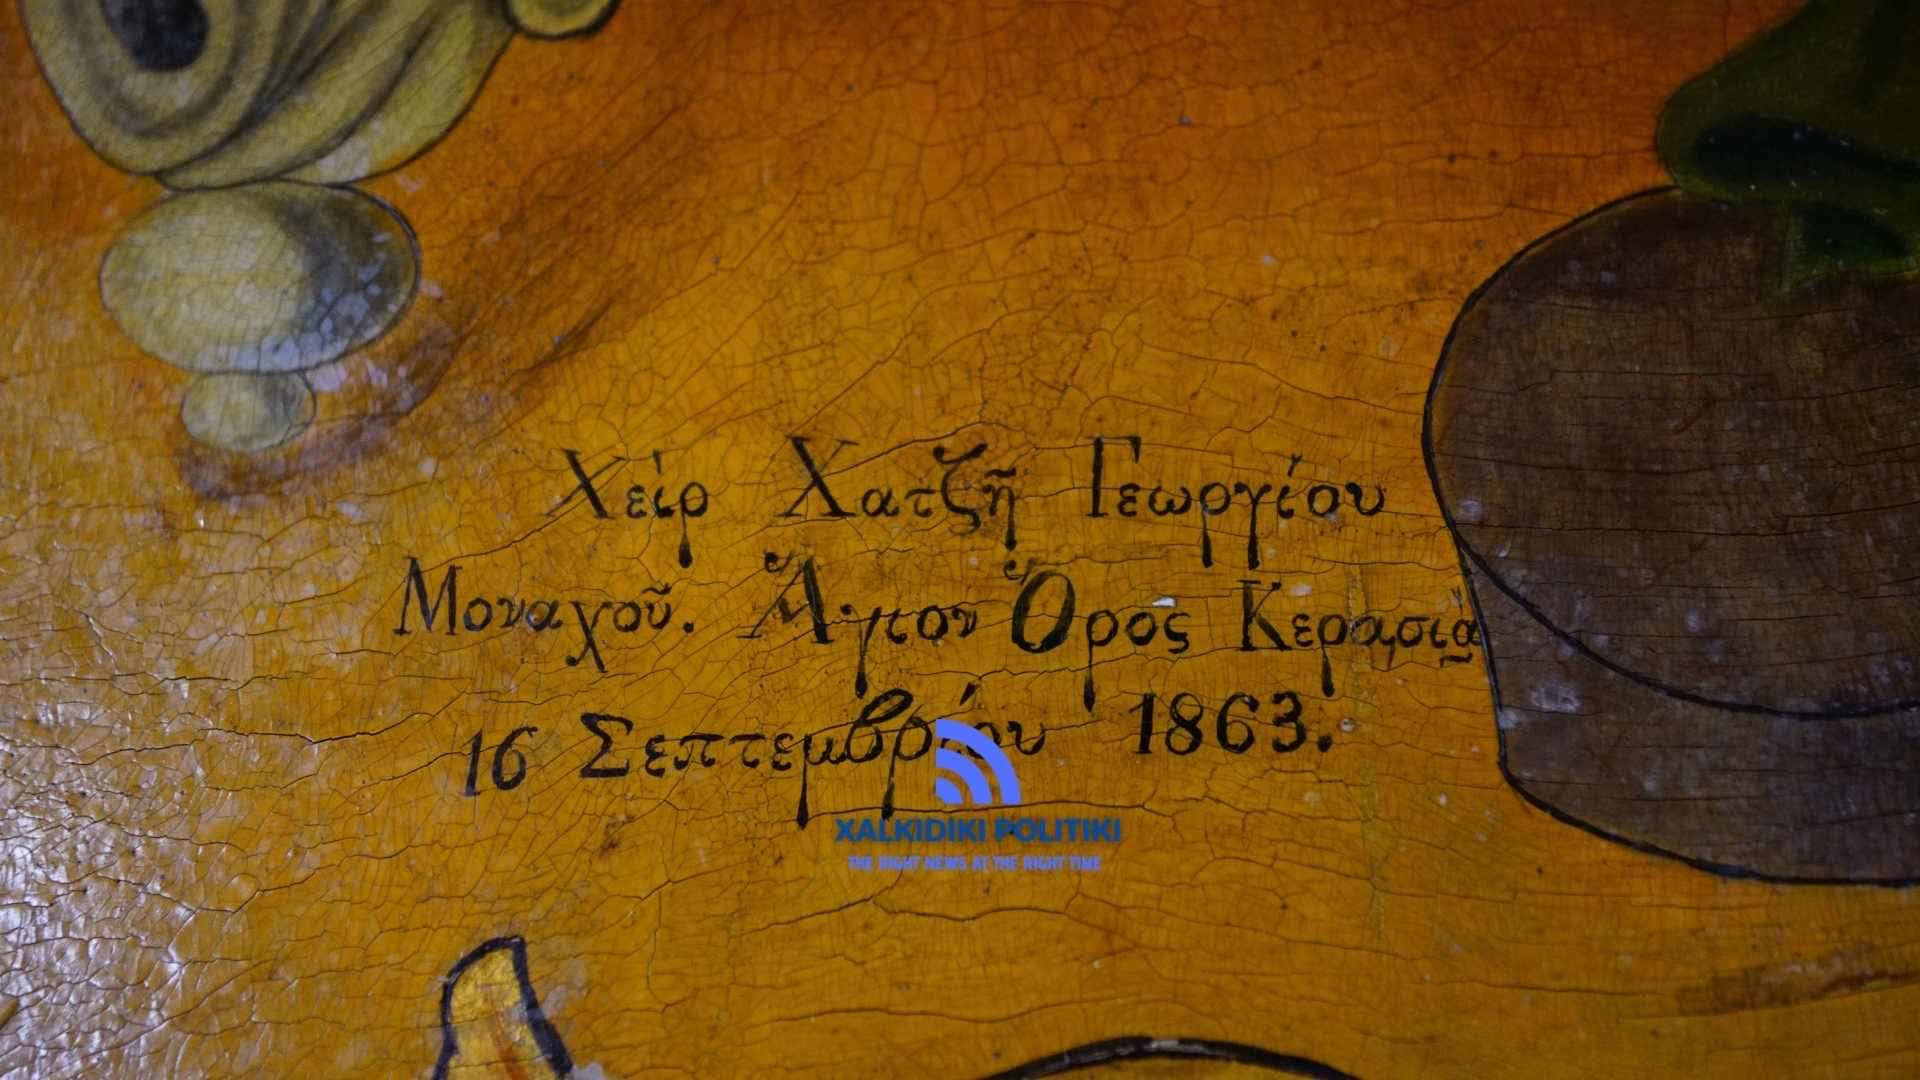 Χεὶρ Χατζῆ Γεωργίου
Μοναχοῦ. Ἅγιον Ὄρος Κερασιᾷ
16 Σεπτεμβρίου 1863.
XALKIDIKI POLITIKI
THE RIGHT NEWS AT THE RIGHT TIME